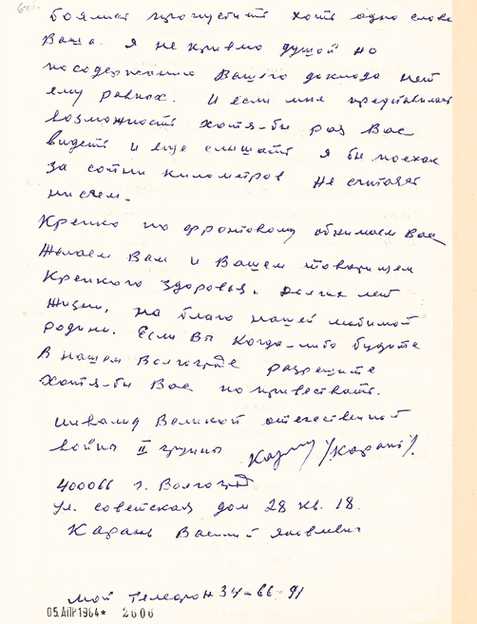 боялись пропустить хоть одно слово
Ваше. Я не кривлю душой но
по содержанию Вашего доклада нет
ему равных. И если мне представилась
возможность хотя-бы раз Вас
видеть и еще слышать я бы поехал
за сотни километров не считаясь
ни с чем.
Крепко по фронтовому обнимаем Вас
Желаем Вам и Вашем товарищем
крепкого здоровья. Долгих лет
жизни, на благо нашей любимой
родины. Если Вы когда-либо будите
в нашем Волгограде разрешите
хотя-бы Вас поприведствать.
инвалид Великой отечественной
войны II группы /Карань/.
400066 г. Волгоград
ул. советская дом 28 кв. 18.
Карань Василий Яковлевич
мой телефон 34-66-91
05.АПР1984* 2606